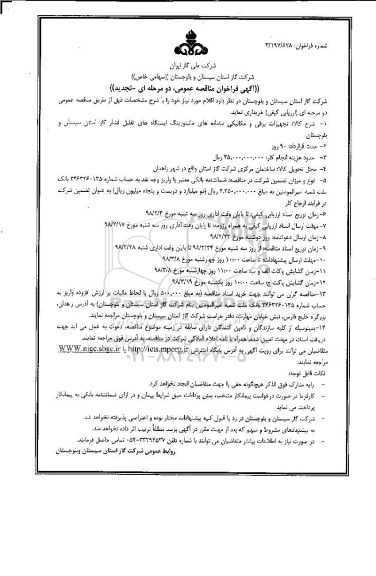 شماره فراخوان: ۳/۱۹۷/۸۲۸
شرکت ملی گاز ایران
شرکت گاز استان سیستان و بلوچستان (سهامی خاص)
((آگهی فراخوان مناقصه عمومی، دو مرحله ای -تجدید))
شرکت گاز استان سیستان و بلوچستان در نظر دارد اقلام مورد نیاز خود را با شرح مشخصات ذیل از طریق مناقصه عمومی
دو مرحله ای (ارزیابی کیفی) خریداری نماید.
۱- شرح کالا: تجهیزات برقی و مکانیکی سامانه های مانیتورینگ ایستگاه های تقلیل فشار گاز استان سیستان و
بلوچستان
۲- مدت قرارداد: ۹۰ روز
۳- حدود هزینه انجام کار: ۴۵,۰۰۰,۰۰۰,۰۰۰ ریال
۴- محل تحویل کالا: ساختمان مرکزی شرکت گاز استان واقع در شهر زاهدان
۵- نوع و میزان تضمین شرکت در مناقصه: ضمانتنامه بانکی معتبر یا واریز وجه نقد به حساب شماره ۲۴۶۳۱۶۰۱۳۵ بانک
ملت شعبه امیرالمومنین به مبلغ ۲,۲۵۰,۰۰۰,۰۰۰ ریال (دو میلیارد و دویست و پنجاه میلیون ریال) به عنوان تضمین شرکت
در فرآیند ارجاع کار
۶- زمان توزیع اسناد ارزیابی کیفی: تا پایان وقت اداری روز سه شنبه مورخ ۹۸/۲/۳
۷- مهلت ارسال اسناد ارزیابی کیفی به همراه رزومه: تا پایان وقت اداری روز سه شنبه مورخ ۹۸/۲/۱۷
۸- زمان ارسال دعوتنامه: روز دوشنبه مورخ
۹- زمان توزیع اسناد مناقصه: از روز سه شنبه مورخ ۹۸/۲/۲۴ تا پایان وقت اداری شنبه مورخ ۹۸/۲/۲۸
۱۰- مهلت ارسال پیشنهادات: تا ساعت ۱۰:۰۰ روز چهارشنبه مورخ ۹۸/۳/۸
۱۱- زمان گشایش پاکات الف و ب: ساعت ۱۱:۰۰ روز چهارشنبه مورخ ۹۸/۳/۸
۱۲- زمان گشایش پاکت ج: ساعت ۱۰:۰۰ روز یکشنبه مورخ ۹۸/۳/۱۹
۱۳- مناقصه گران می توانند جهت خرید اسناد مناقصه به مبلغ ۵۰۰,۰۰۰ ریال با لحاظ مالیات بر ارزش افزوده واریز به
حساب شماره ۲۴۶۳۱۶۰۱۳۵ بانک ملت شعبه امیرالمومنین بنام شرکت گاز استان سیستان و بلوچستان به آدرس زاهدان،
بزرگراه خلیج فارس، نبش خیابان مهارت، دفتر حراست شرکت گاز استان سیستان و بلوچستان مراجعه نمایند.
۱۴- بدینوسیله از کلیه سازندگان و تامین کنندگان دارای سابقه در زمینه موضوع مناقصه، دعوت به عمل می آید جهت
دریافت اسناد، در مهلت تعیین شده، همراه با نامه اعلام آمادگی شرکت در مناقصه به آدرس فوق مراجعه نمایند.
متقاضیان می توانند برای رویت آگهی به آدرس پایگاه اینترنتی http://iets.mporg.ir یا WWW.nigc-sbgc.ir
مراجعه نمایند.
نکات قابل توجه:
- رایه مدارک فوق الذکر هیچگونه حقی را جهت متقاضیان ایجاد نخواهد کرد.
- کارفرما در صورت درخواست پیمانکار منتخب، پیش پرداخت طبق شرایط پیمان و در ازای ضمانتنامه بانکی به پیمانکار
پرداخت می نماید
- شرکت گاز سیستان و بلوچستان در رد یا قبول کلیه پیشنهادات مختار بوده و اعتراضی پذیرفته نخواهد شد.
- به پیشنهادهای مشروط و مبهم که بعد از مهلت مقرر در آگهی برسد مطلقا ترتیب اثر داده نخواهد شد.
- در صورت نیاز به اطلاعات بیشتر متقاضیان می توانند با شماره تلفن ۳۳۲۹۴۵۳۷-۰۵۴ تماس حاصل فرمایند.
روابط عمومی شرکت گاز استان سیستان وبلوچستان
۰۲۱-۸۸۳۴۹۶۷۰-۵